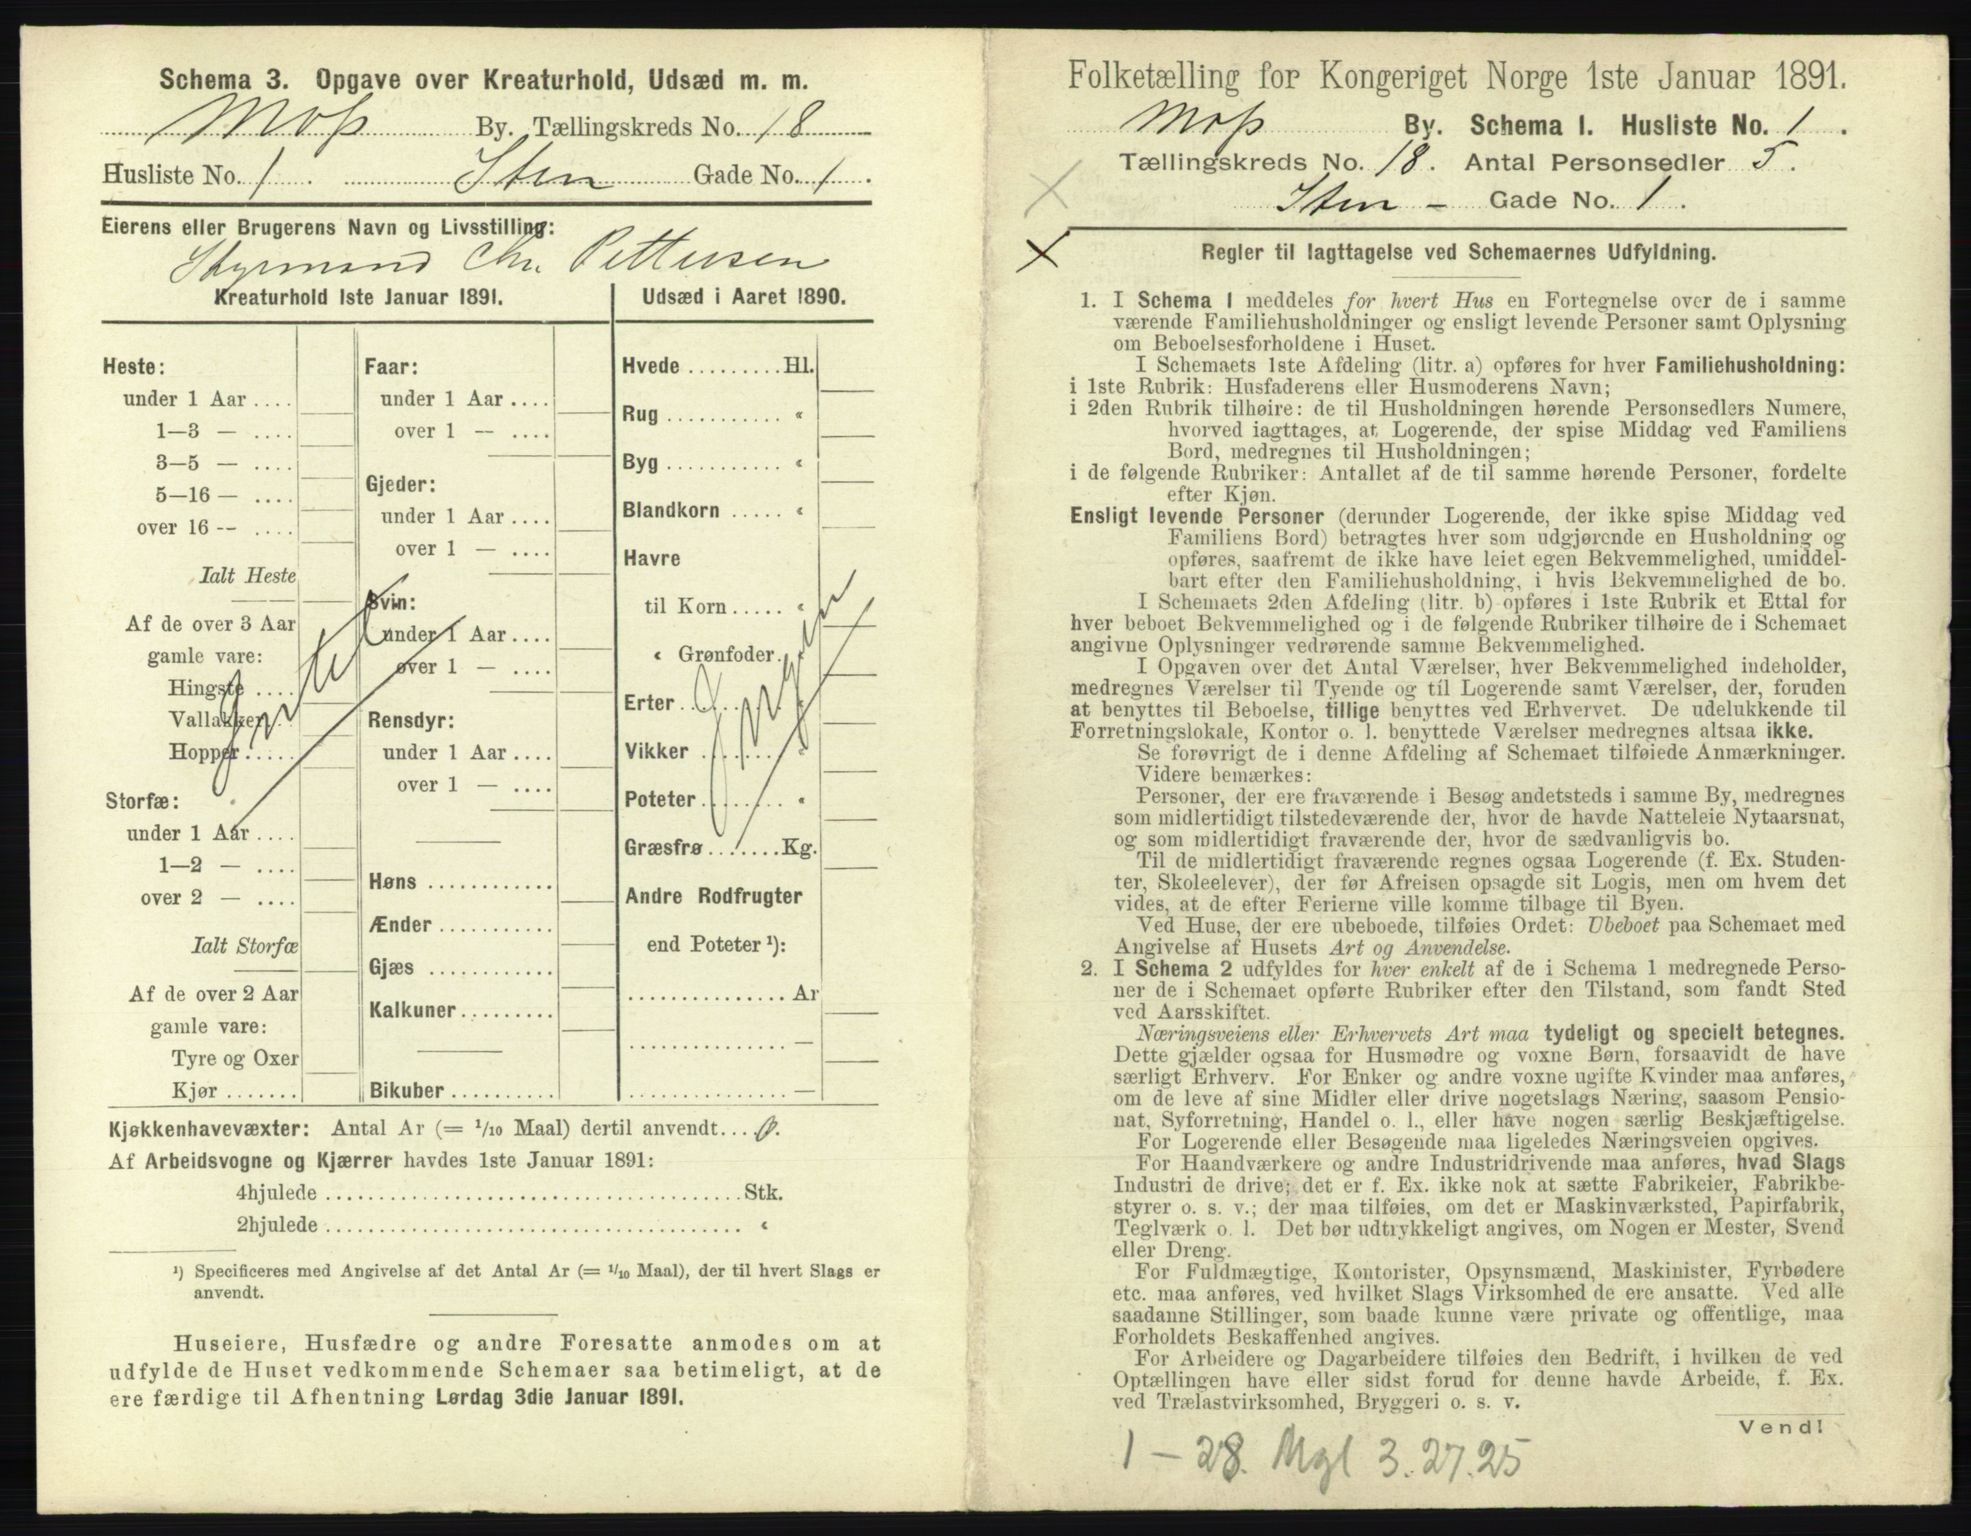 Schema 3. Opgave over Kreaturhold, Udsæd m. m.
Moss By. Tællingskreds No. 18
Husliste No. 1. Sten Gade No. 1.
Eierens eller Brugerens Navn og Livsstilling:
Styrmand Chr. Pettersen
Kreaturhold 1ste Januar 1891.
Heste:
under 1 Aar ....
1—3 — ....
3—5 — ....
5—16 — ....
over 16 -- ....
Ialt Heste
Af de over 3 Aar
gamle vare:
Hingste ....
Vallakker ..
Hopper .....
Storfæ:
under 1 Aar ....
1—2 — ....
over 2 — ....
Ialt Storfæ
Af de over 2 Aar
gamle vare:
Tyre og Oxer
Kjør .......
Faar:
under 1 Aar ....
over 1 — ....
Gjeder:
under 1 Aar ....
over 1 — ....
Svin:
under 1 Aar ....
over 1 — ....
Rensdyr:
under 1 Aar ....
over 1 — ....
Høns ............
Ænder ...........
Gjæs ............
Kalkuner .........
Bikuber ..........
Udsæd i Aaret 1890.
Hvede ......... Hl.
Rug ........... «
Byg ........... «
Blandkorn ..... «
Havre
til Korn ..... «
« Grønfoder. «
Erter ......... «
Vikker ........ «
Poteter ....... «
Græsfrø ....... Kg.
Andre Rodfrugter
end Poteter ¹):
............... Ar
............... —
............... —
Ingen
Kjøkkenhavevæxter: Antal Ar (= 1/10 Maal) dertil anvendt.... 0.
Af Arbeidsvogne og Kjærrer havdes 1ste Januar 1891:
4hjulede ........................................ Stk.
2hjulede ........................................ «
¹) Specificeres med Angivelse af det Antal Ar (= 1/10 Maal), der til hvert Slags er
anvendt.
Huseiere, Husfædre og andre Foresatte anmodes om at
udfylde de Huset vedkommende Schemaer saa betimeligt, at de
ere færdige til Afhentning Lørdag 3die Januar 1891.
Folketælling for Kongeriget Norge 1ste Januar 1891.
Moss By. Schema 1. Husliste No. 1.
Tællingskreds No. 18. Antal Personsedler 5.
Sten - Gade No. 1.
Regler til Iagttagelse ved Schemaernes Udfyldning.
1. I Schema 1 meddeles for hvert Hus en Fortegnelse over de i samme
værende Familiehusholdninger og ensligt levende Personer samt Oplysning
om Beboelsesforholdene i Huset.
I Schemaets 1ste Afdeling (litr. a) opføres for hver Familiehusholdning:
i 1ste Rubrik: Husfaderens eller Husmoderens Navn;
i 2den Rubrik tilhøire: de til Husholdningen hørende Personsedlers Numere,
hvorved iagttages, at Logerende, der spise Middag ved Familiens
Bord, medregnes til Husholdningen;
i de følgende Rubriker: Antallet af de til samme hørende Personer, fordelte
efter Kjøn.
Ensligt levende Personer (derunder Logerende, der ikke spise Middag ved
Familiens Bord) betragtes hver som udgjørende en Husholdning og
opføres, saafremt de ikke have leiet egen Bekvemmelighed, umiddel-
bart efter den Familiehusholdning, i hvis Bekvemmelighed de bo.
I Schemaets 2den Afdeling (litr. b) opføres i 1ste Rubrik et Ettal for
hver beboet Bekvemmelighed og i de følgende Rubriker tilhøire de i Schemaet
angivne Oplysninger vedrørende samme Bekvemmelighed.
I Opgaven over det Antal Værelser, hver Bekvemmelighed indeholder,
medregnes Værelser til Tyende og til Logerende samt Værelser, der, foruden
at benyttes til Beboelse, tillige benyttes ved Erhvervet. De udelukkende til
Forretningslokale, Kontor o. l. benyttede Værelser medregnes altsaa ikke.
Se forøvrigt de i denne Afdeling af Schemaet tilføiede Anmærkninger.
Videre bemærkes:
Personer, der ere fraværende i Besøg andetsteds i samme By, medregnes
som midlertidigt tilstedeværende der, hvor de havde Natteleie Nytaarsnat,
og som midlertidigt fraværende der, hvor de sædvanligvis bo.
Til de midlertidigt fraværende regnes ogsaa Logerende (f. Ex. Studen-
ter, Skoleelever), der før Afreisen opsagde sit Logis, men om hvem det
vides, at de efter Ferierne ville komme tilbage til Byen.
Ved Huse, der ere ubeboede, tilføies Ordet: Ubeboet paa Schemaet med
Angivelse af Husets Art og Anvendelse.
2. I Schema 2 udfyldes for hver enkelt af de i Schema 1 medregnede Perso-
ner de i Schemaet opførte Rubriker efter den Tilstand, som fandt Sted
ved Aarsskiftet.
Næringsveiens eller Erhvervets Art maa tydeligt og specielt betegnes.
Dette gjælder ogsaa for Husmødre og voxne Børn, forsaavidt de have
særligt Erhverv. For Enker og andre voxne ugifte Kvinder maa anføres,
om de leve af sine Midler eller drive nogetslags Næring, saasom Pensio-
nat, Syforretning, Handel o. l., eller have nogen særlig Beskjæftigelse.
For Logerende eller Besøgende maa ligeledes Næringsveien opgives.
For Haandværkere og andre Industridrivende maa anføres, hvad Slags
Industri de drive; det er f. Ex. ikke nok at sætte Fabrikeier, Fabrikbe-
styrer o. s. v.; der maa tilføies, om det er Maskinværksted, Papirfabrik,
Teglværk o. l. Det bør udtrykkeligt angives, om Nogen er Mester, Svend
eller Dreng.
For Fuldmægtige, Kontorister, Opsynsmænd, Maskinister, Fyrbødere
etc. maa anføres, ved hvilket Slags Virksomhed de ere ansatte. Ved alle
saadanne Stillinger, som baade kunne være private og offentlige, maa
Forholdets Beskaffenhed angives.
For Arbeidere og Dagarbeidere tilføies den Bedrift, i hvilken de ved
Optællingen have eller sidst forud for denne havde Arbeide, f. Ex.
ved Trælastvirksomhed, Bryggeri o. s. v.
Vend!
1 — 28. Mgl 3.27.25